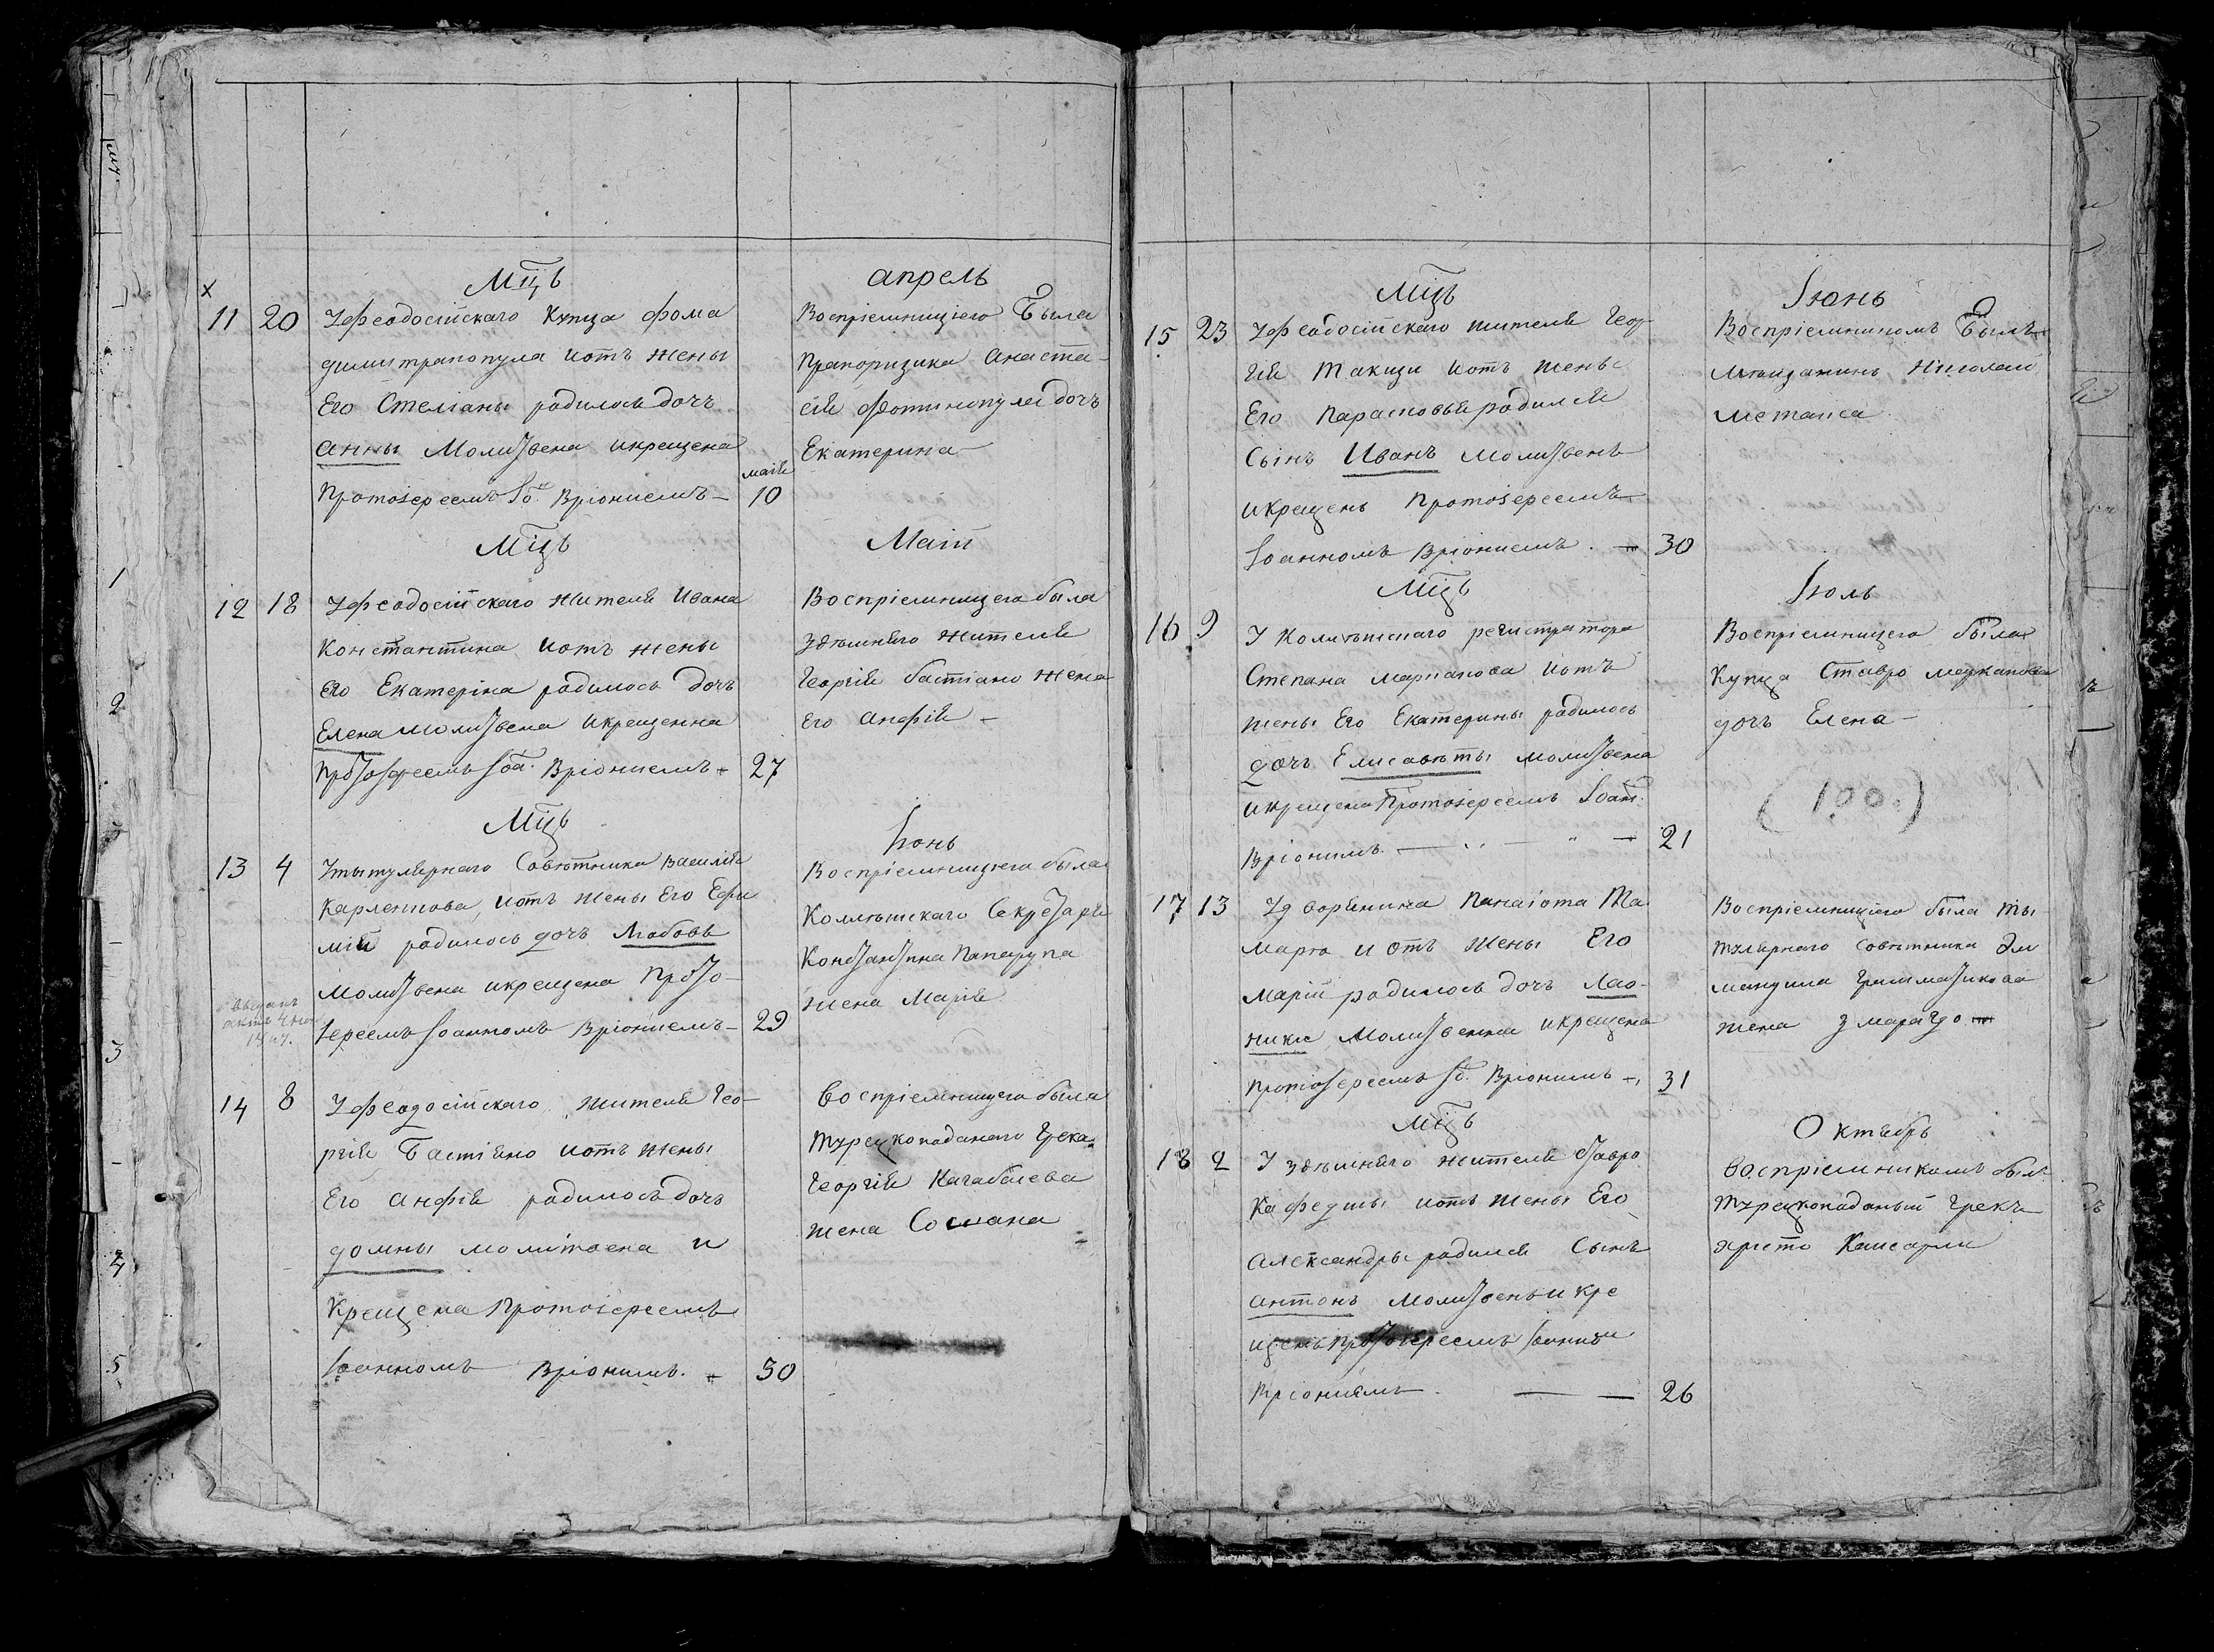 Мцъ апрель
11 20 Уфеодосійскаго Купца фома
димитрапопула иотъ жены
Его Стеліаны родилось дочъ
анны молитвена икрещена
маія
Протоіереемъ Іо. Вріониемъ — 10
Воспріемницею Была
Прапорщика анаста-
сія фотинопула дочъ
Екатерина —
Мцъ Маій
12 18 Уфеодосійскаго жителя Ивана
Константина иотъ жены
его Екатеріна родилось дочъ
Елена молитвена икрещенна
протоіереемъ Іоа. Вріониемъ — 27
Воспріемницею была
здешняго жителя
Георгія бастіано жена
его анфія —
Мцъ Іюнь
13 4 Утытулярнаго Советника Василія
Карлентова, иотъ жены Его Ефи
мія родилось дочъ Любовь
молитвена икрещена Прото-
іереемъ Іоанномъ Вріониемъ — 29
выданъ
Воспріемницею была
Коллежскаго Секретаря
Константина Папарупа
жена Марія
14 8 Уфеодосійскаго жителя Гео-
ргія Бастіяно иотъ жены
Его анфія родилось дочъ
домны молитвена и
Крещена Протоіереемъ
Іоанномъ Вріонимъ. — 30
Воспріемницею была
турецкоподанаго грека
Георгія Качабаева
жена Сосана
Мцъ Іюнь
15 23 Уфеодосійскаго жителя Геор-
гія Такици иотъ жены
Его парасковья родился
Сынъ Иванъ молитвенъ
икрещенъ Протоіереемъ
Іоанномъ Вріониемъ. — 30
Воспріемникомъ Былъ
мещанинъ Николай
метакса
Мцъ Іюль
16 9 У Колежскаго регистратора
Степана Марнапова иотъ
жены Его Екатерины родилось
дочъ Елисаветы молитвена
икрещена Протоіереемъ Іоан.
Вріонимъ. — 21
Воспріемницею была
Купца Ставро
дочъ Елена —
(100.)
17 13 Удворянина Панаіота Та
марго и отъ жены Его
Марій родилось дочъ Лао-
ники Молитвенна икрещена
протоіереемъ Іо. Вріонимъ — 31
Воспріемницею была ты
тулярнаго советника Эм
мануила Грамматикова
жена змарагдо
Мцъ Октябрь
18 2 У здешняго жителя Ставро
Кафеджы иотъ жены Его
Александры родился Сынъ
антонъ молитвенъ и кре
щенъ протоіереемъ Іоанномъ
Вріониемъ. — 26
воспріемникомъ былъ
Турецкоподаный грекъ
христо Каисарли